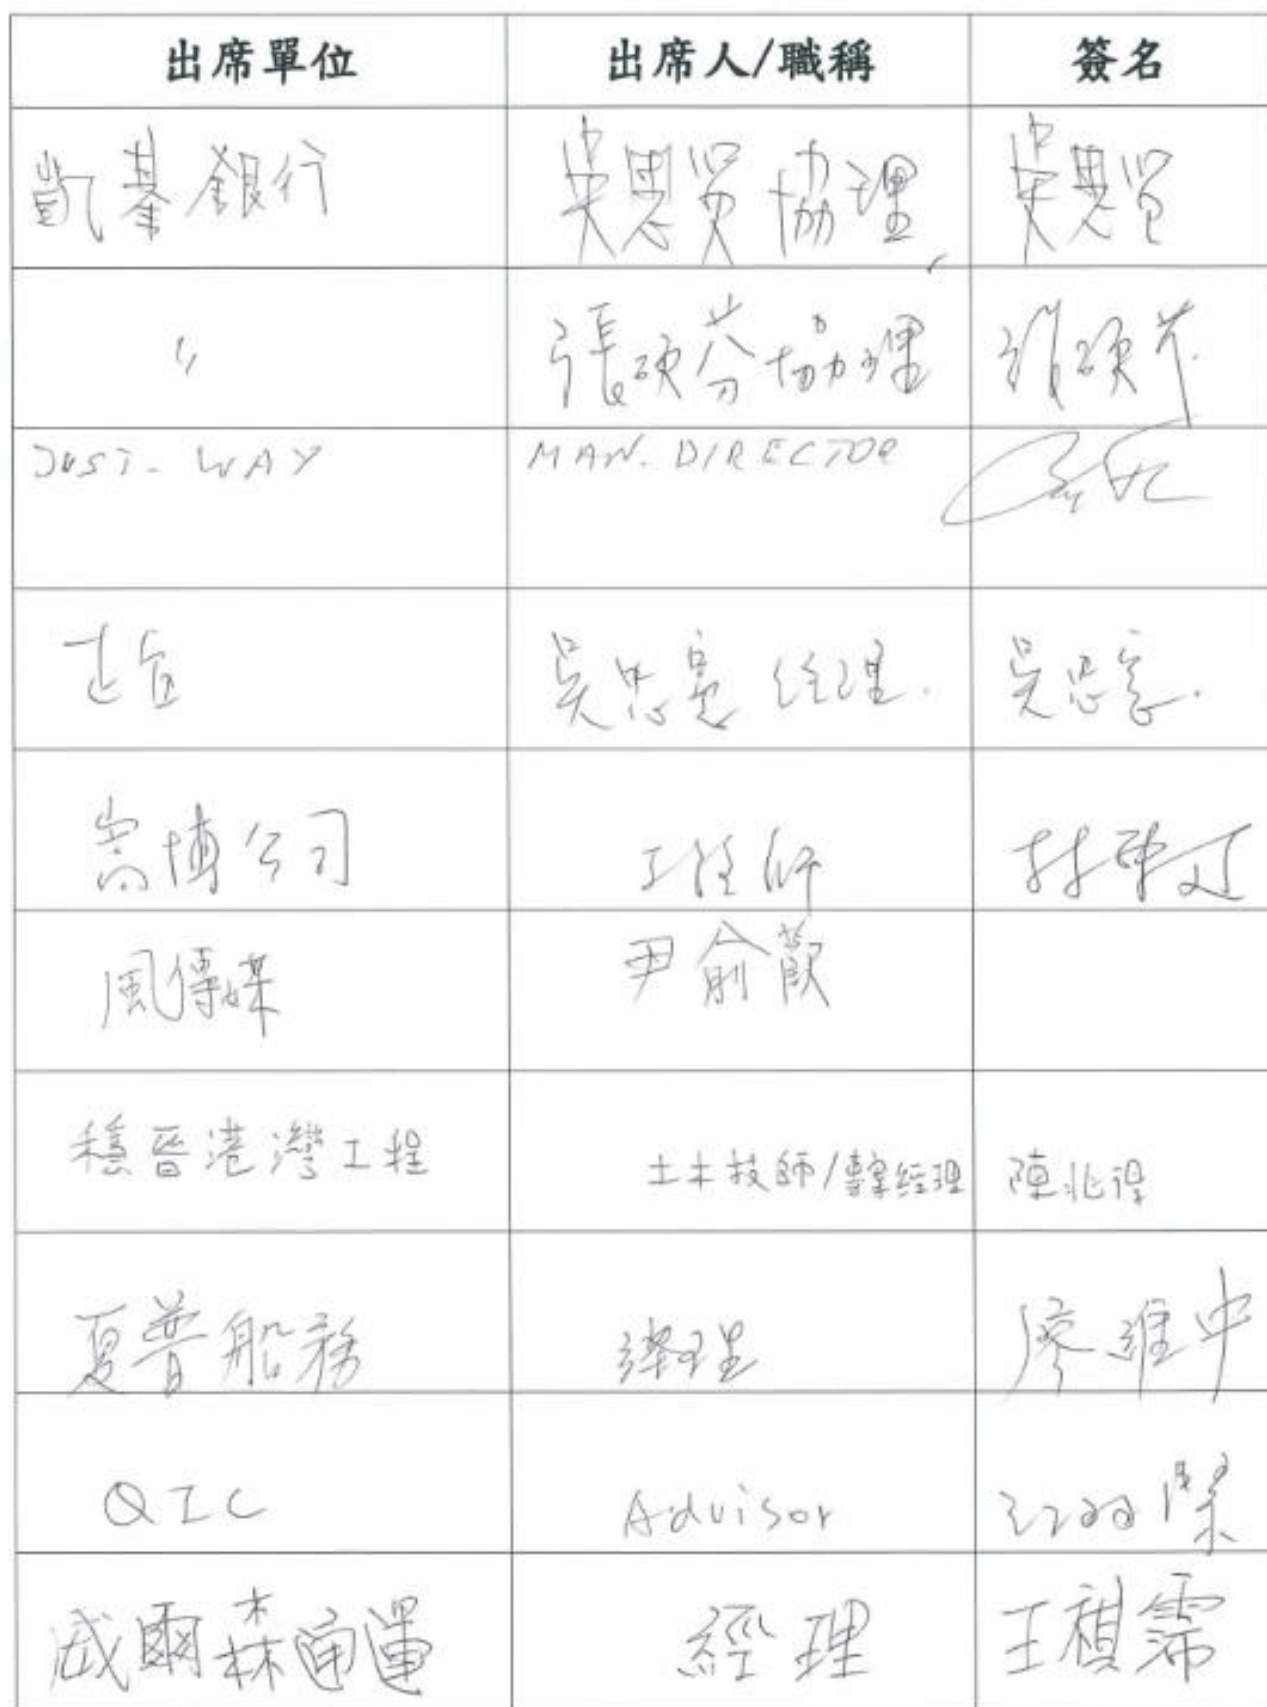 出席單位 出席人/職稱 簽名
凱基銀行 吳思賢 協理 吳思賢
〃 張碩芬 協理 張碩芬
JUST-WAY MAN. DIRECTOR
吳忠寬 經理. 吳忠寬.
嵩博公司 工程師 林
風傳媒 尹俞歡
穩晉港灣工程 土木技師/專案經理 陳兆
夏普船務 經理 廖維中
QIC Advisor
威爾森通運 經理 王祺霈